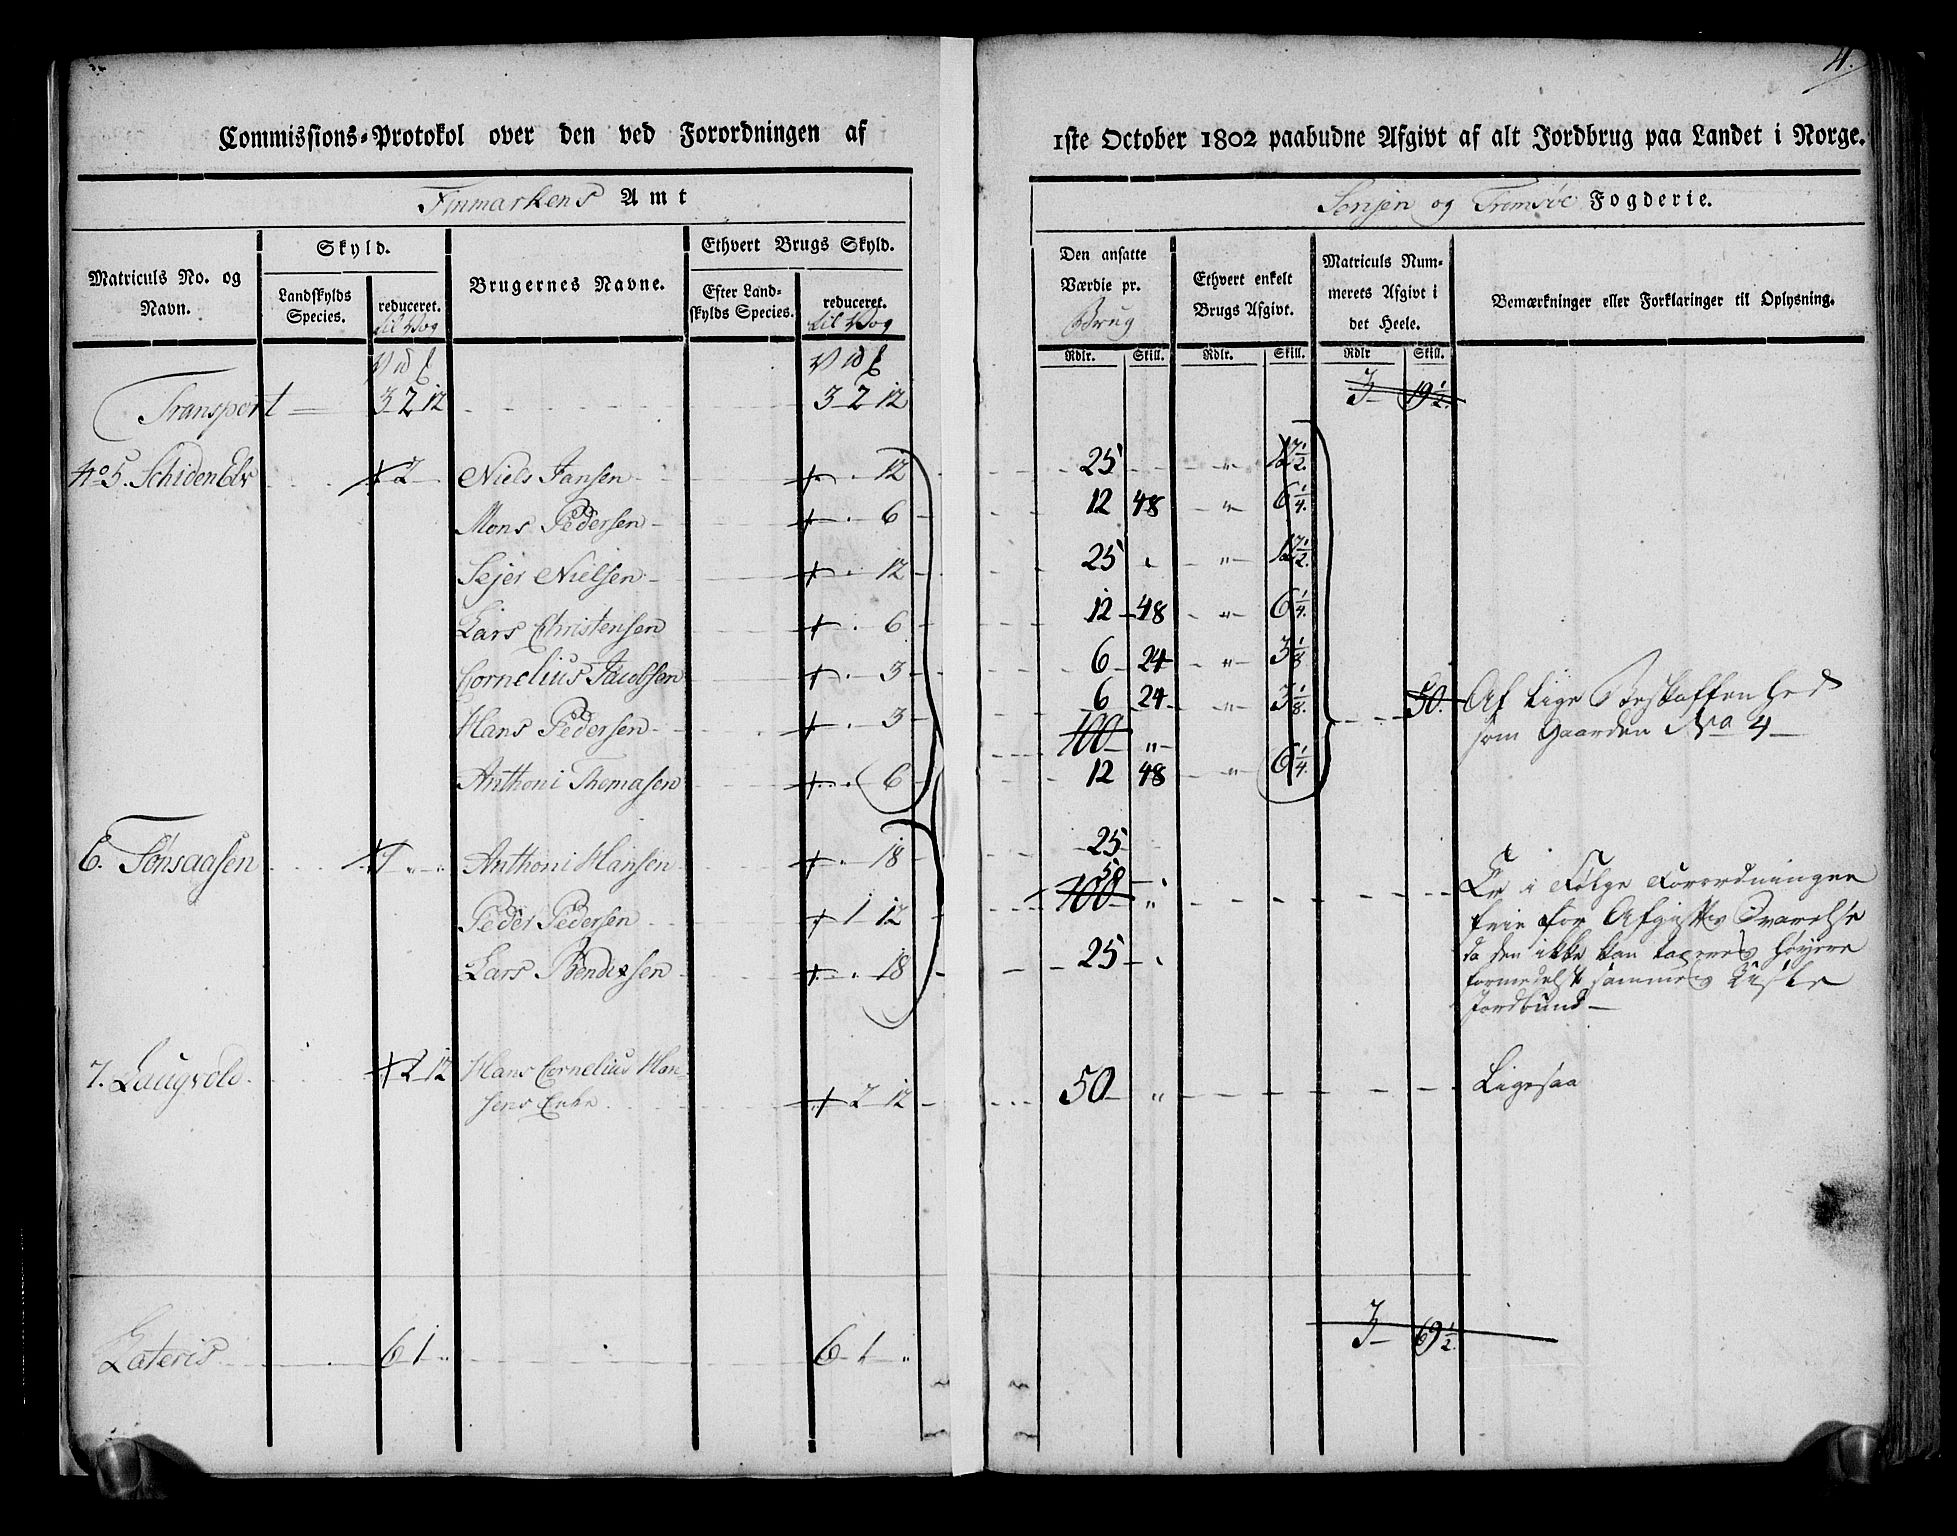 4.
Commissions-Protokol over den ved Forordningen af 1ste October 1802 paabudne Afgivt af alt Jordbrug paa Landet i Norge.
Finmarkens Amt
Senjen og Tromsøe Fogderie.
Matriculs No. og Navn.
Skyld.
Landskylds Species.
reduceret. til Vog
Brugernes Navne.
Ethvert Brugs Skyld.
Efter Landskylds Species.
reduceret. til Vog
Den ansatte Værdie pr. Brug
Ethvert enkelt Brugs Afgivt.
Matriculs Nummerets Afgivt i det Heele.
Bemærkninger eller Forklaringer til Oplysning.
Rdlr. Skill. Rdlr. Skill. Rdlr Skill.
Transport 3 2 12 3 2 12 3 19 1/2.
No 5. Schiden Elv 2 Niels Jansen 12 25 12 1/2.
Mons Pedersen 6 12 48 " 6 1/4.
Sejer Nielsen 12 25 " 12 1/2.
Lars Christensen 6 12 48 " 6 1/4.
Cornelius Jacobsen 3 6 24 " 3 1/8
Hans Pedersen 3 6 24 " 3 1/8. 50. Af lige Beskaffenhed
100 " som Gaarden No 4
Anthoni Thomasen 6 12 48 " 6 1/4.
6. Tønsaasen 1 " " Anthoni Hansen 18 25
50
Peder Pedersen 1 12 100 " Er i Følge Forordningen
frie for Afgivts Svarelse
Lars Bendixsen 18 25 da den ikke kan taxeres høyere
formedelst sammes
Jordbund
7. Laugvold 2 12 Hans Cornelius Hansens Enke 2 12 50 " Ligesaa
Lateris 6 1 " 6 1 " 3 69 1/2.